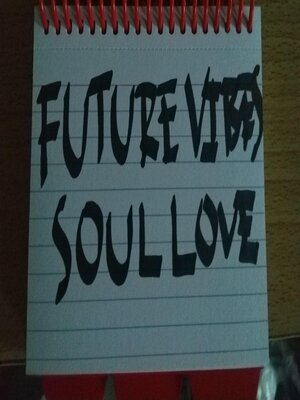 FUTURE VIBES
SOUL LOVE